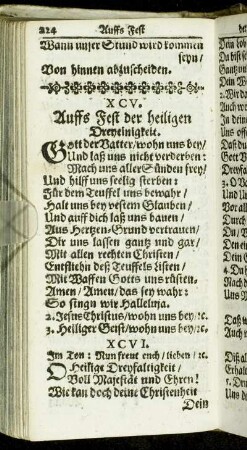 224 Auffs Fest
Wann unser Stund wird kommen
seyn/
Von hinnen abzuscheiden.
XCV.
Auffs Fest der heiligen
Dreyeinigkeit.
Gott der Vatter/wohn uns bey/
Und laß uns nicht verderben:
Mach uns aller Sünden frey/
Und hilff uns seelig sterben:
Für dem Teuffel uns bewahr/
Halt uns bey vestem Glauben/
Und auff dich laß uns bauen/
Aus Hertzen-Grund vertrauen/
Dir uns lassen gantz und gar/
Mit allen rechten Christen/
Entfliehn deß Teuffels Listen/
Mit Waffen Gotts uns rüsten.
Amen/Amen/das sey wahr:
So singn wir Halleluja.
2. Jesus Christus/wohn uns bey/ꝛc.
3. Heiliger Geist/wohn uns bey/ꝛc.
XCVI.
Im Ton: Nun freut euch/lieben/ꝛc.
O Heilige Dreyfaltigkeit/
Voll Majestät und Ehren!
Wie kan doch deine Christenheit
Dein